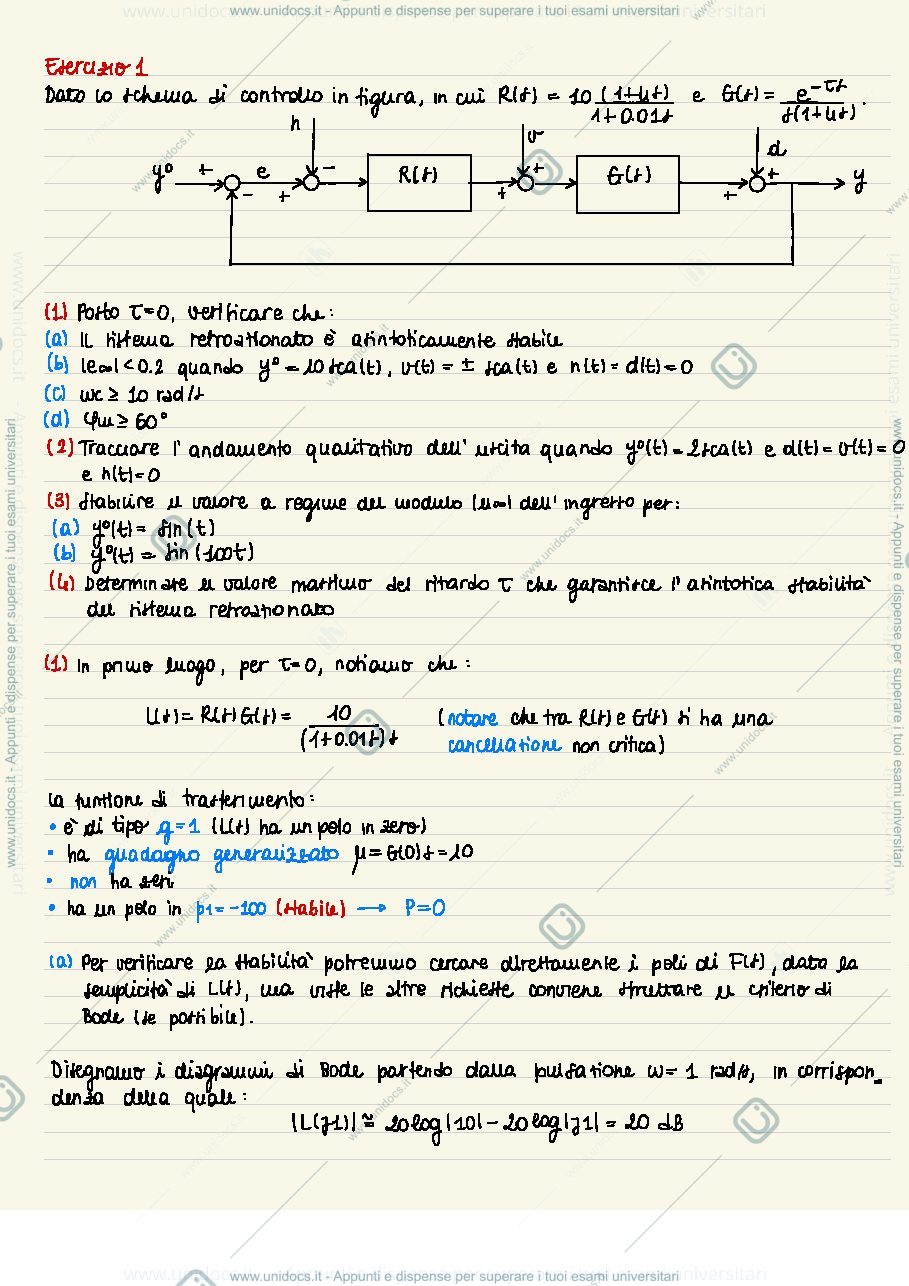 www.unidocs.it - Appunti e dispense per superare i tuoi esami universitari
Esercizio 1
Dato lo schema di controllo in figura, in cui R(s) = 10 (1+4s) / 1+0.01s e G(s) = e^-τs / s(1+4s).
n v d
y° + e − R(s) + G(s) + y
− + + +
(1) Posto τ=0, verificare che:
(a) Il sistema retroazionato è asintoticamente stabile
(b) |e∞|<0.2 quando y° = 10 sca(t), v(t) = ± sca(t) e n(t) = d(t) = 0
(c) ωc ≥ 10 rad/s
(d) φm ≥ 60°
(2) Tracciare l'andamento qualitativo dell'uscita quando y°(t) = 2sca(t) e d(t) = v(t) = 0
e n(t)=0
(3) Stabilire il valore a regime del modulo |u∞| dell'ingresso per:
(a) y°(t) = sin(t)
(b) y°(t) = sin(100t)
(4) Determinare il valore massimo del ritardo τ che garantisce l'asintotica stabilità
del sistema retroazionato
(1) In primo luogo, per τ=0, notiamo che:
L(s) = R(s)G(s) = 10 / (1+0.01s)s (notare che tra R(s) e G(s) si ha una
cancellazione non critica)
La funzione di trasferimento:
• è di tipo g=1 (L(s) ha un polo in zero)
• ha guadagno generalizzato μ = G(0)s = 10
• non ha zeri
• ha un polo in p1 = -100 (stabile) → P=0
(a) Per verificare la stabilità potremmo cercare direttamente i poli di F(s), data la
semplicità di L(s), ma viste le altre richieste conviene sfruttare il criterio di
Bode (se possibile).
Disegnamo i diagrammi di Bode partendo dalla pulsazione ω = 1 rad/s, in corrispon_
denza della quale:
|L(j1)| ≅ 20log|10| - 20log|j1| = 20 dB
www.unidocs.it - Appunti e dispense per superare i tuoi esami universitari